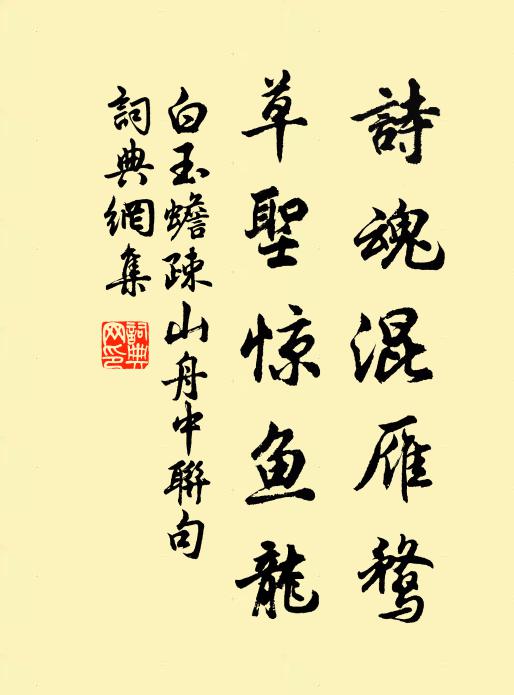 詩魂混雁鶩
草聖惊鱼龍
白玉蟾疎山舟中聯句
詞典網集
詞典
网印